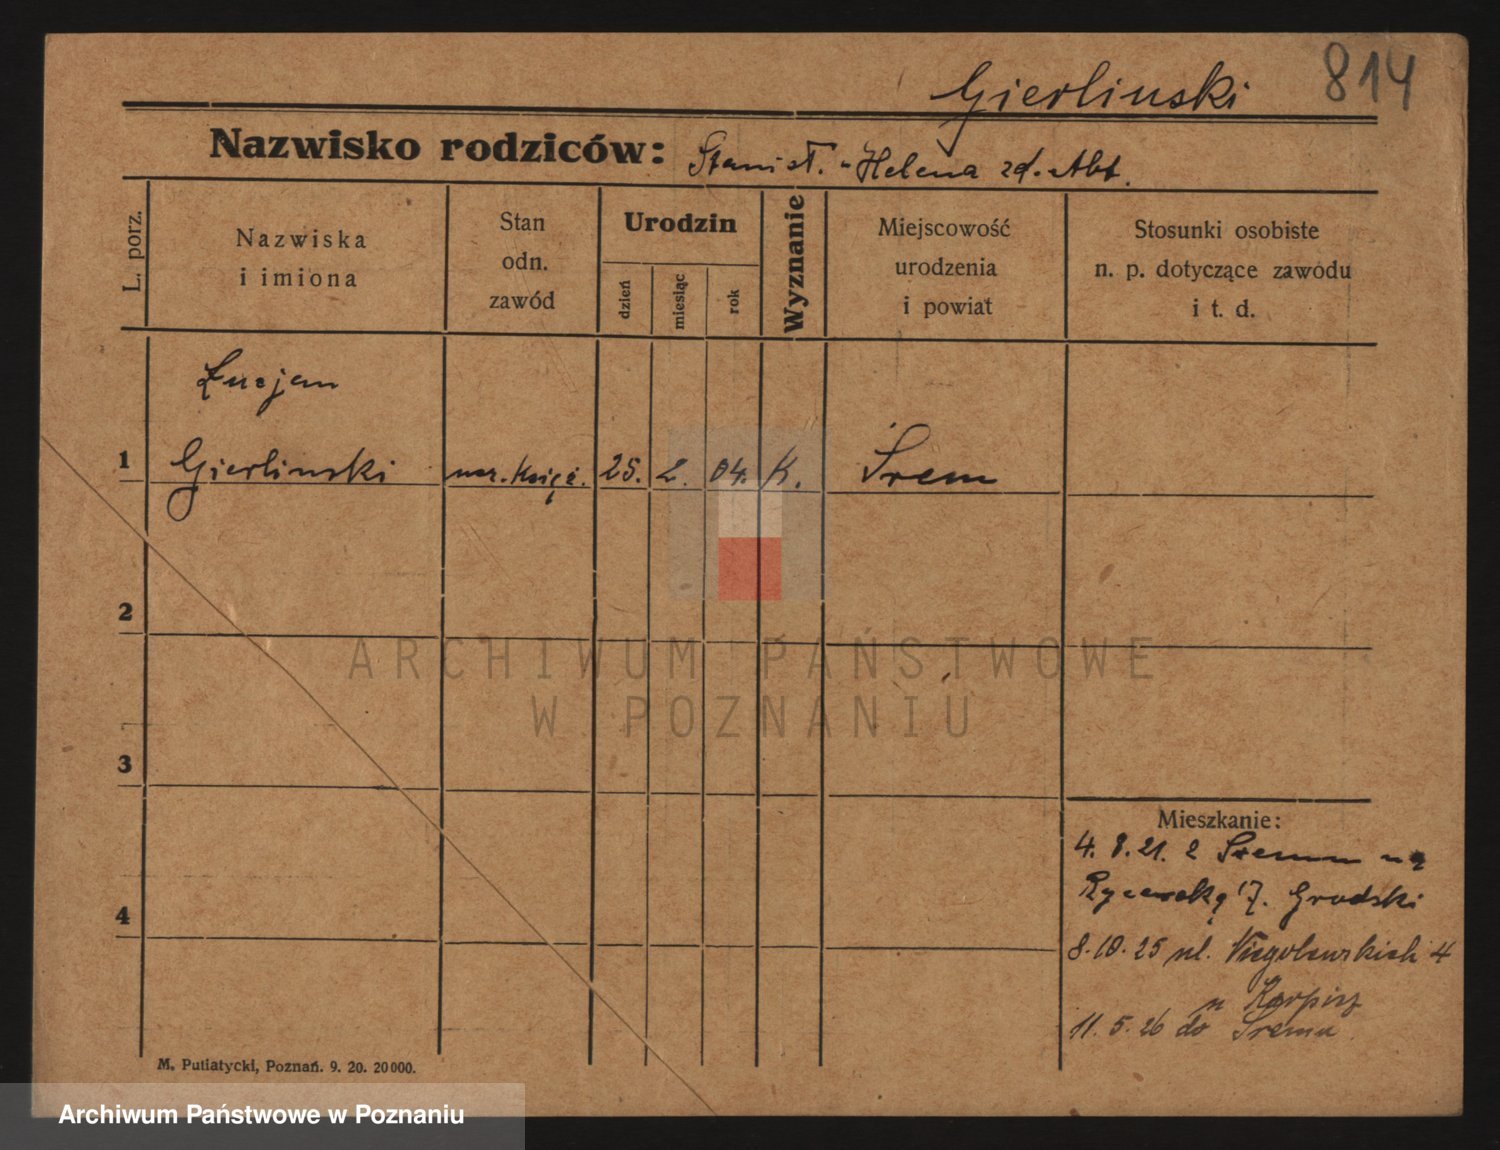 Gierlinski 814
Nazwisko rodziców: Stanisł. - Helena zd. Abt.
L. porz.
Nazwiska
i imiona
Stan
odn.
zawód
Urodzin
dzień
miesiąc
rok
Wyznanie
Miejscowość
urodzenia
i powiat
Stosunki osobiste
n. p. dotyczące zawodu
i t. d.
Łucjan
1 Gierlinski ucz. Księg. 25. 2. 04. K. Śrem
2
3
4
ARCHIWUM PAŃSTWOWE
W POZNANIU
Mieszkanie:
4. 8. 21. z Śremu na
17. Grodski
8.10.25 ul. Niegolewskich 4
u Karpisz
11. 5. 26 do Śremu
M. Putiatycki, Poznań. 9. 20. 20000.
Archiwum Państwowe w Poznaniu